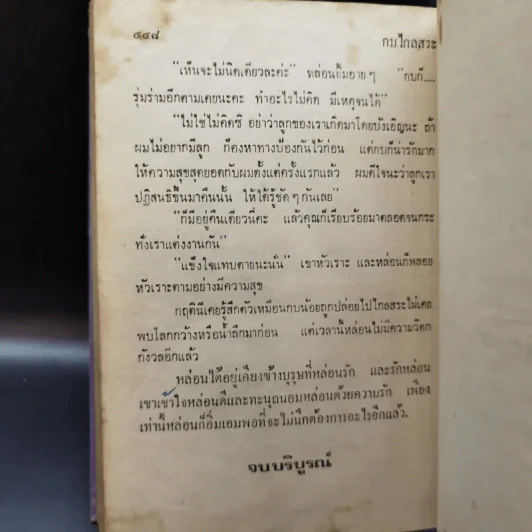 ๔๔๘
กบไกลสระ
"เห็นจะไม่นิดเดียวละค่ะ" หล่อนยิ้มอายๆ "กบก็....
รุ่มร่ามอีกตามเคยนะคะ ทำอะไรไม่คิด มีเหตุจนได้"
"ไม่ใช่ไม่คิดซิ อย่าว่าลูกของเราเกิดมาโดยบังเอิญนะ ถ้า
ผมไม่อยากมีลูก ก็คงหาทางป้องกันไว้ก่อน แต่กบก็น่ารักมาก
ให้ความสุขสุดยอดกับผมตั้งแต่ครั้งแรกแล้ว ผมดีใจนะว่าลูกเรา
ปฏิสนธิขึ้นมาคืนนั้น ให้ได้รู้ชัดๆ กันเลย"
"ก็มีอยู่คืนเดียวนี่คะ แล้วคุณก็เรียบร้อยมาตลอดจนกระ
ทั่งเราแต่งงานกัน"
"แข็งใจแทบตายนะนั่น" เขาหัวเราะ และหล่อนก็พลอย
หัวเราะตามอย่างมีความสุข
กฤตินีเคยรู้สึกตัวเหมือนกบน้อยถูกปล่อยไปไกลสระไม่เคย
พบโลกกว้างหรือน้ำลึกมาก่อน แต่เวลานี้หล่อนไม่มีความวิตก
กังวลอีกแล้ว
หล่อนได้อยู่เคียงข้างบุรุษที่หล่อนรัก และรักหล่อน
เขาเข้าใจหล่อนดีและทะนุถนอมหล่อนด้วยความรัก เพียง
เท่านี้หล่อนก็อิ่มเอมพอที่จะไม่นึกต้องการอะไรอีกแล้ว.
จบบริบูรณ์